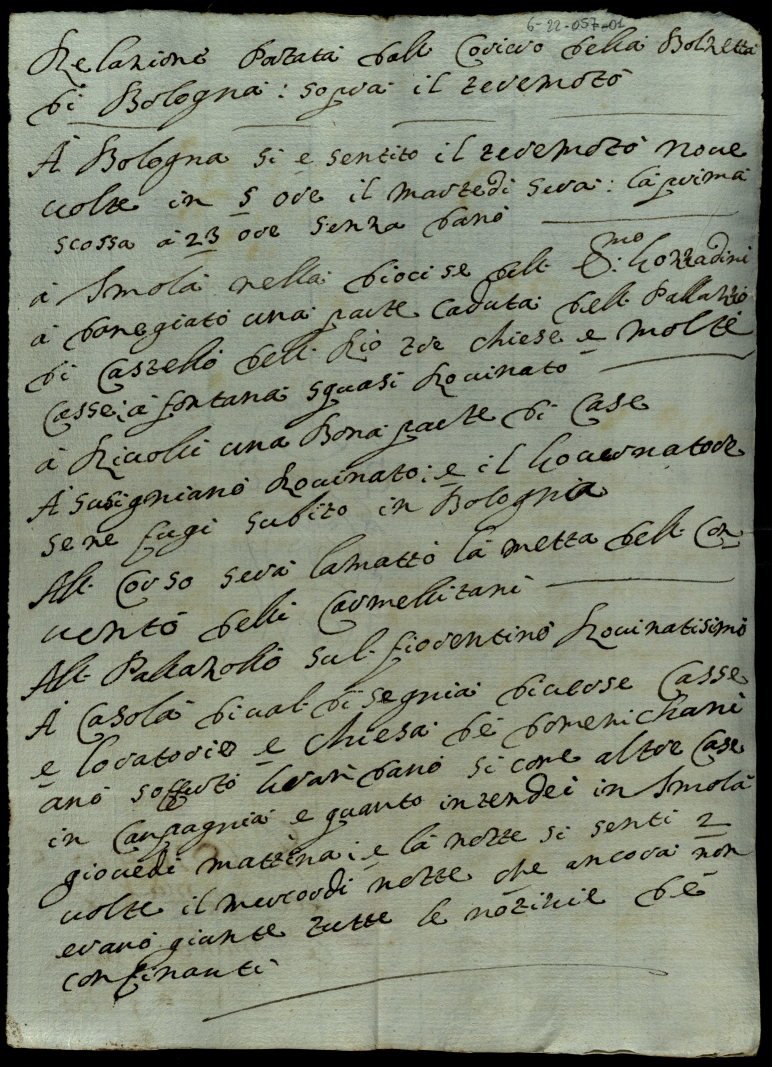 6-22-057-01
Relazione Portata dall Coriero della Bolzetta
di Bologna: sopra il teremoto
A Bologna si e sentito il teremoto noue
uolte in 5 ore il martedi sera: la prima
scossa a 23 ore senza dano
a Imola nella diocise dell E:mo Gozzadini
a danegiato una parte caduta dell Pallazzo
di Castello dell Rio tre chiese e molte
Casse; a fontana squasi Rouinato
a Riuolti una Bona parte di Case
A susigniano Rouinato: e il Gouernatore
se ne fugi subito in Bolognia
All Corso sera la matto la metta dell Con
uento delli Carmellitani
All Pallazollo sul fiorentino Rouinatisimo
A Casola di ual di segnia diuerse Casse
e loratorio e chiesa de domenichani
ano soferto Grari dano si come altre Case
in Canpagnia e quanto intendei in Imola
giouedi mattina: e la notte si senti 2
uolte il mercordi notte che ancora non
erano giunte tutte le notizie de
confinanti